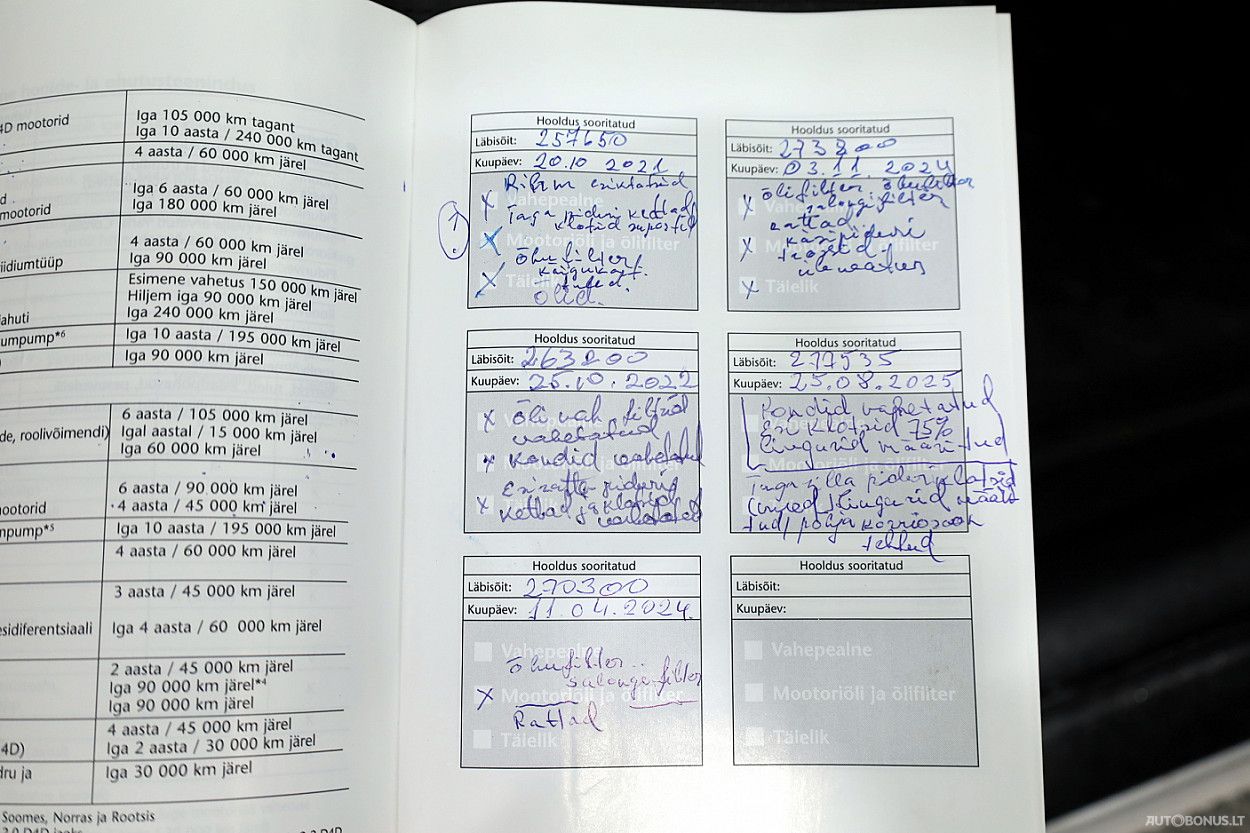 4D mootorid
Iga 105 000 km tagant
Iga 10 aasta / 240 000 km tagant
4 aasta / 60 000 km järel
d
mootorid
Iga 6 aasta / 60 000 km järel
Iga 180 000 km järel
iidiumtüüp
4 aasta / 60 000 km järel
Iga 90 000 km järel
Esimene vahetus 150 000 km järel
Hiljem iga 90 000 km järel
jahuti
Iga 240 000 km järel
umpump*6
Iga 10 aasta / 195 000 km järel
Iga 90 000 km järel
6 aasta / 105 000 km järel
de, roolivõimendi)
Igal aastal / 15 000 km järel
Iga 60 000 km järel
6 aasta / 90 000 km järel
ootorid
4 aasta / 45 000 km järel
npump*5
Iga 10 aasta / 195 000 km järel
4 aasta / 60 000 km järel
3 aasta / 45 000 km järel
esidiferentsiaali
Iga 4 aasta / 60 000 km järel
2 aasta / 45 000 km järel
Iga 90 000 km järel*4
Iga 90 000 km järel
4 aasta / 45 000 km järel
4D)
Iga 2 aasta / 30 000 km järel
dru ja
Iga 30 000 km järel
Soomes, Norras ja Rootsis
Hooldus sooritatud
Läbisõit: 257650
Kuupäev: 20.10 2021
Vahepealne
Taga piduri kettad
klotsid suportid
Mootoriõli ja õlifilter
Õhufilter
Täielik
Õlid.
Hooldus sooritatud
Läbisõit: 273200
Kuupäev: 03.11. 2024
õlifilter õhufilter
salongifilter
rattad
käsipiduri
trossid
Täielik
Hooldus sooritatud
Läbisõit: 263200
Kuupäev: 25.10.2022
x Õli vah filtrid
vahetatud
x Kondid vahetatud
Esiratta pidurid
x Kettad ja klotsid
vahetatud
Hooldus sooritatud
Läbisõit: 277535
Kuupäev: 25.08.2025
Kondid vahetatud
Esi klotsid 75%
liugurid määritud
Taga silla piduriklotsid
(uued) liugurid määri
tud/ põhja korrosioon
tehtud
Hooldus sooritatud
Läbisõit: 270300
Kuupäev: 11.04.2024.
Vahepealne
Õhufilter..
salongifilter
x Mootoriõli ja õlifilter
Rattad
Täielik
Hooldus sooritatud
Läbisõit:
Kuupäev:
Vahepealne
Mootoriõli ja õlifilter
Täielik
AUTOBONUS.LT